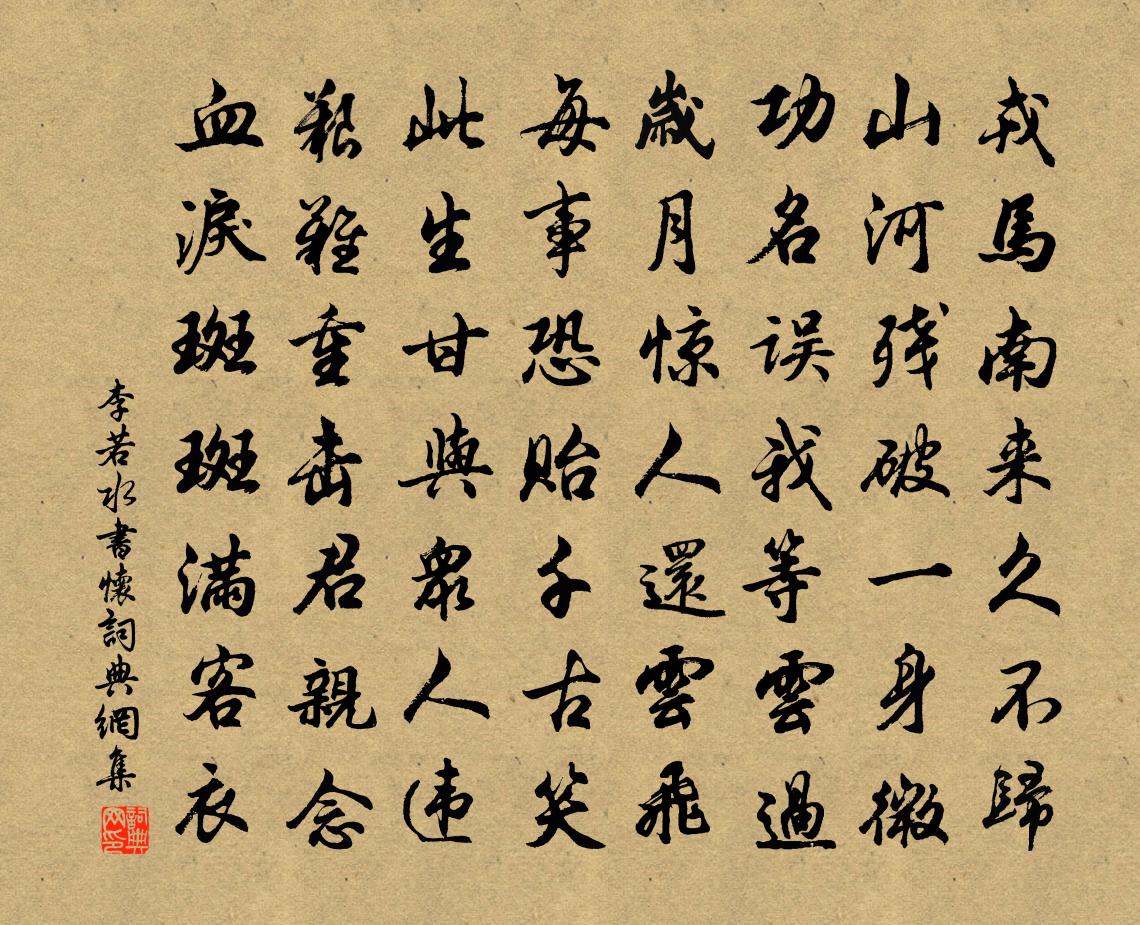 戎馬南来久不歸
山河残破一身微
功名误我等雲過
歲月惊人還雲飛
每事恐貽千古笑
此生甘與眾人违
艱難重击君親念
血淚斑斑滿客衣
李若水書懷詞典網集
詞典网印